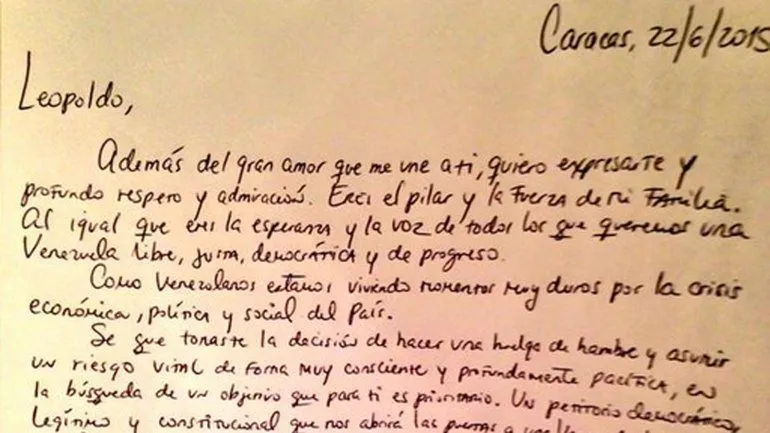 Caracas, 22/6/2015
Leopoldo,
Además del gran amor que me une a ti, quiero expresarte y
profundo respero y admiración. Eres el pilar y la fuerza de mi FAMilia.
Al igual que eres la esperanza y la voz de todos los que queremos una
Venezuela libre, justa, democrática y de progreso.
Como Venezolanos estamos viviendo momentos muy duros por la crisis
económica, política y social del País.
Se que tomaste la decisión de hacer una huelga de hambre y asumir
un riesgo vital de forma muy consciente y profundamente pacífica, en
la búsqueda de un objetivo que para ti es prioritario. Un petitorio democrático,
legítimo y constitucional que nos abrirá las puertas a